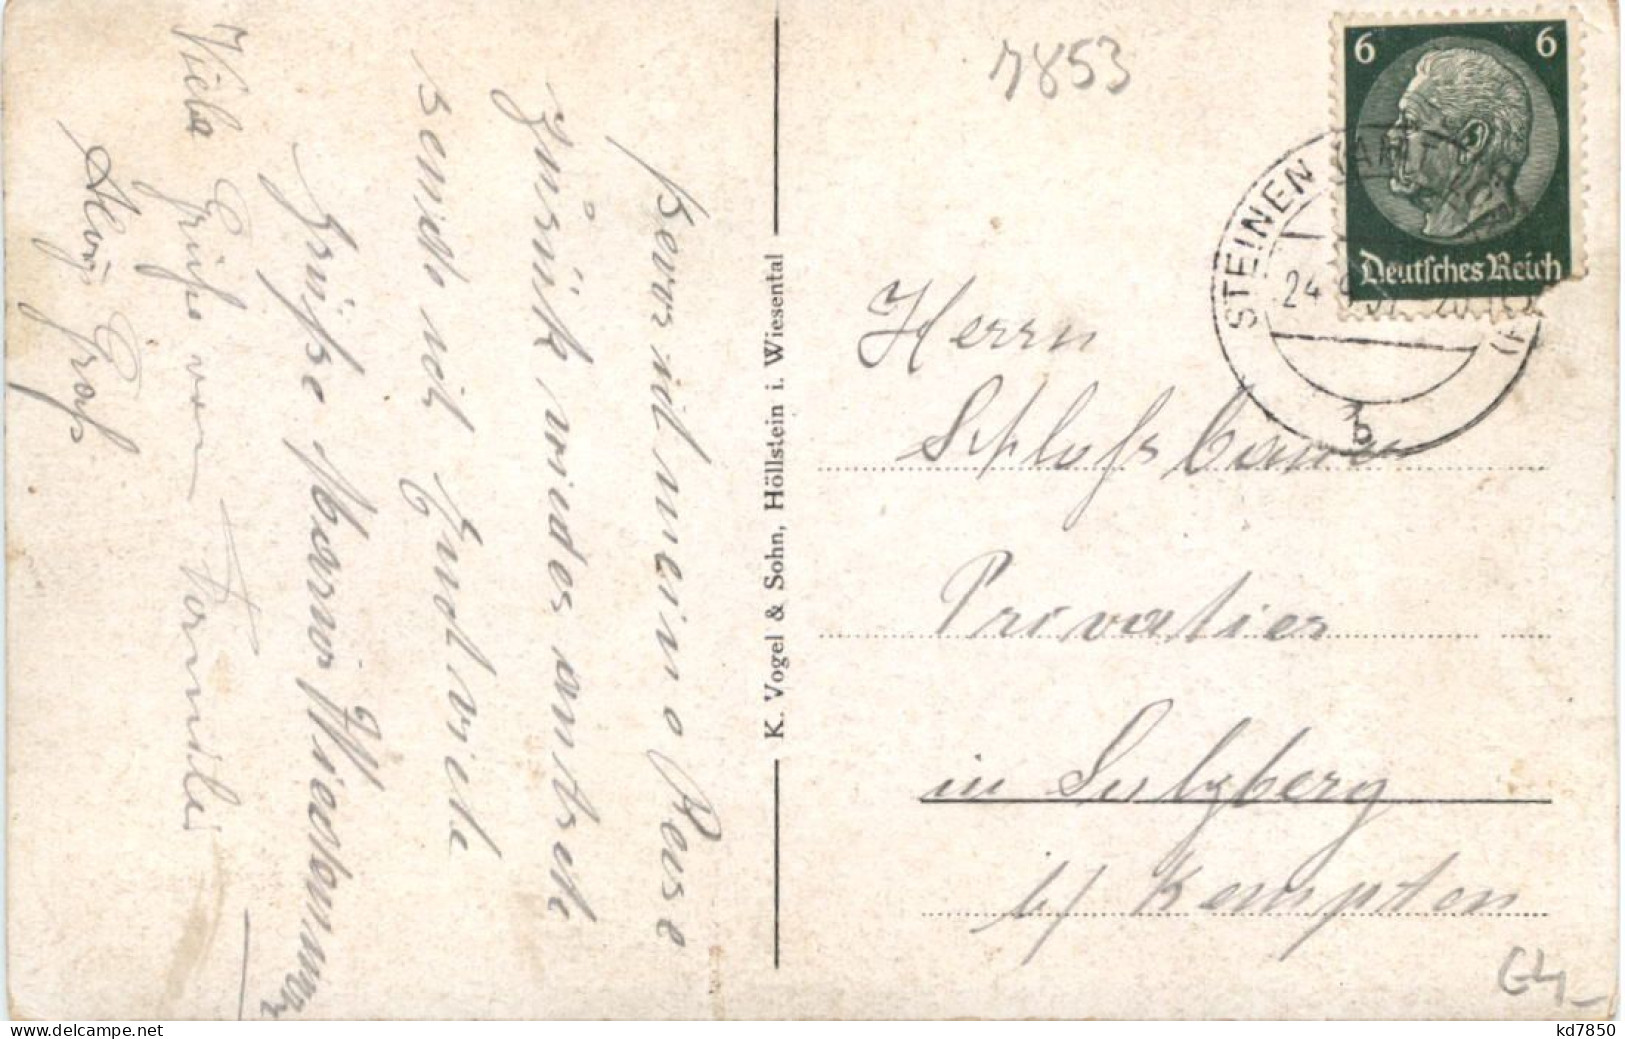 Bevor ich meine Reise
zurück wieder antrete
sende ich Euch viele
Grüße Maria Wiedemann
Viele Grüße von Familie
Aloys Groß
K. Vogel & Sohn, Höllstein i. Wiesental
7853
6 6
Deutsches Reich
STEINEN (AMT LÖRRACH)
24
b
Herrn
Schloßbauer
Privatier
in Sulzberg
b/ Kempten
kd7850